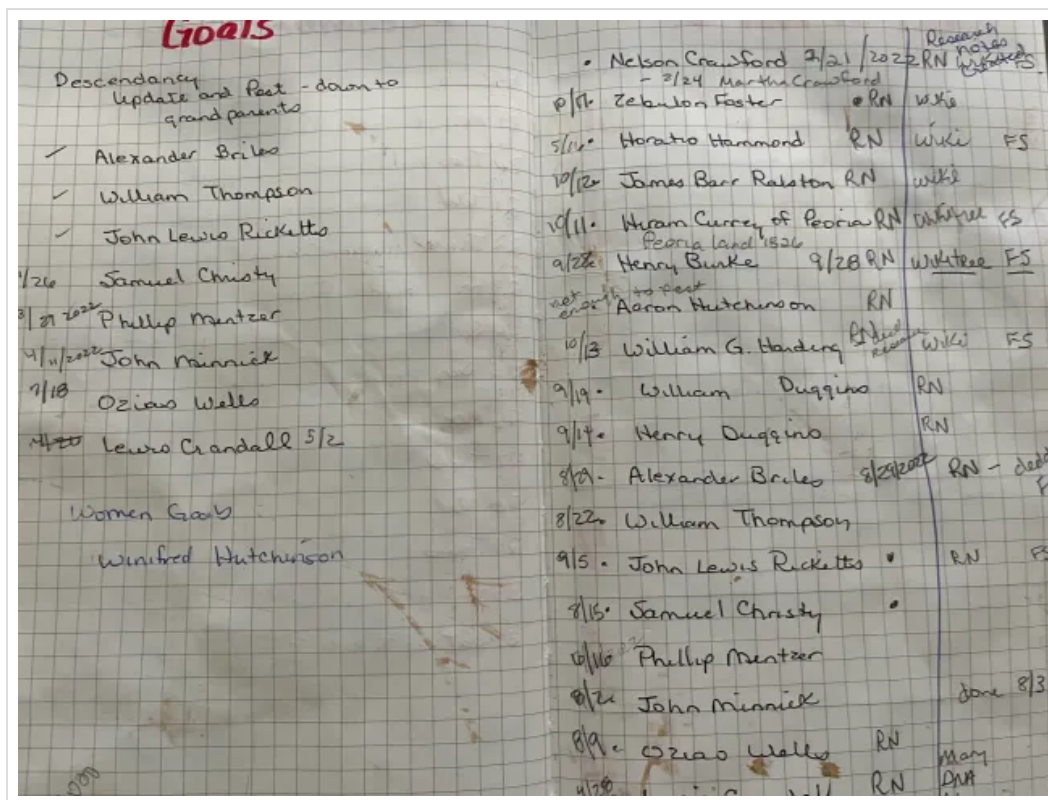 Goals
Descendancy
Update and Post - down to
grandparents
Alexander Briles
William Thompson
John Lewis Ricketts
1/26 Samuel Christy
3/29 2022 Phillip Mentzer
4/11/2022 John Minnick
7/18 Ozias Wells
Lewis Crandall 5/2
Women Goals
Winifred Hutchinson
Research
notes
• Nelson Crawford 2/21/2022 RN FS
- 2/24 Martha Crawford
Zebulon Foster • RN wiki
5/16• Horatio Hammond RN wiki FS
10/12• James Barr Ralston RN wiki
10/11• Hiram Currey of Peoria RN FS
Peoria land 1826
Henry Burke 9/28 RN wikitree FS
not enough to post
Aaron Hutchinson RN
10/13 William G. Harding RN wiki FS
9/19• William Duggins RN
9/14• Henry Duggins RN
8/29• Alexander Briles 8/29/2022 RN -
8/22• William Thompson
9/5• John Lewis Ricketts • RN FS
8/15• Samuel Christy •
Phillip Mentzer
John Minnick done 8/3
8/9• Ozias Wells RN
many
4/28 RN DNA